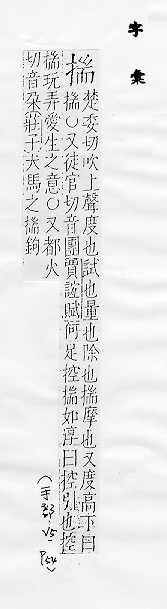 字彙
揣 楚委切吹上聲度也試也量也除也揣摩也又度高下曰
揣〇又徒官切音團賈誼賦何足控揣如淳曰控引也控
揣玩弄愛生之意〇又都火
切音朶莊子大馬之揣鉤
(手部·15·P54)